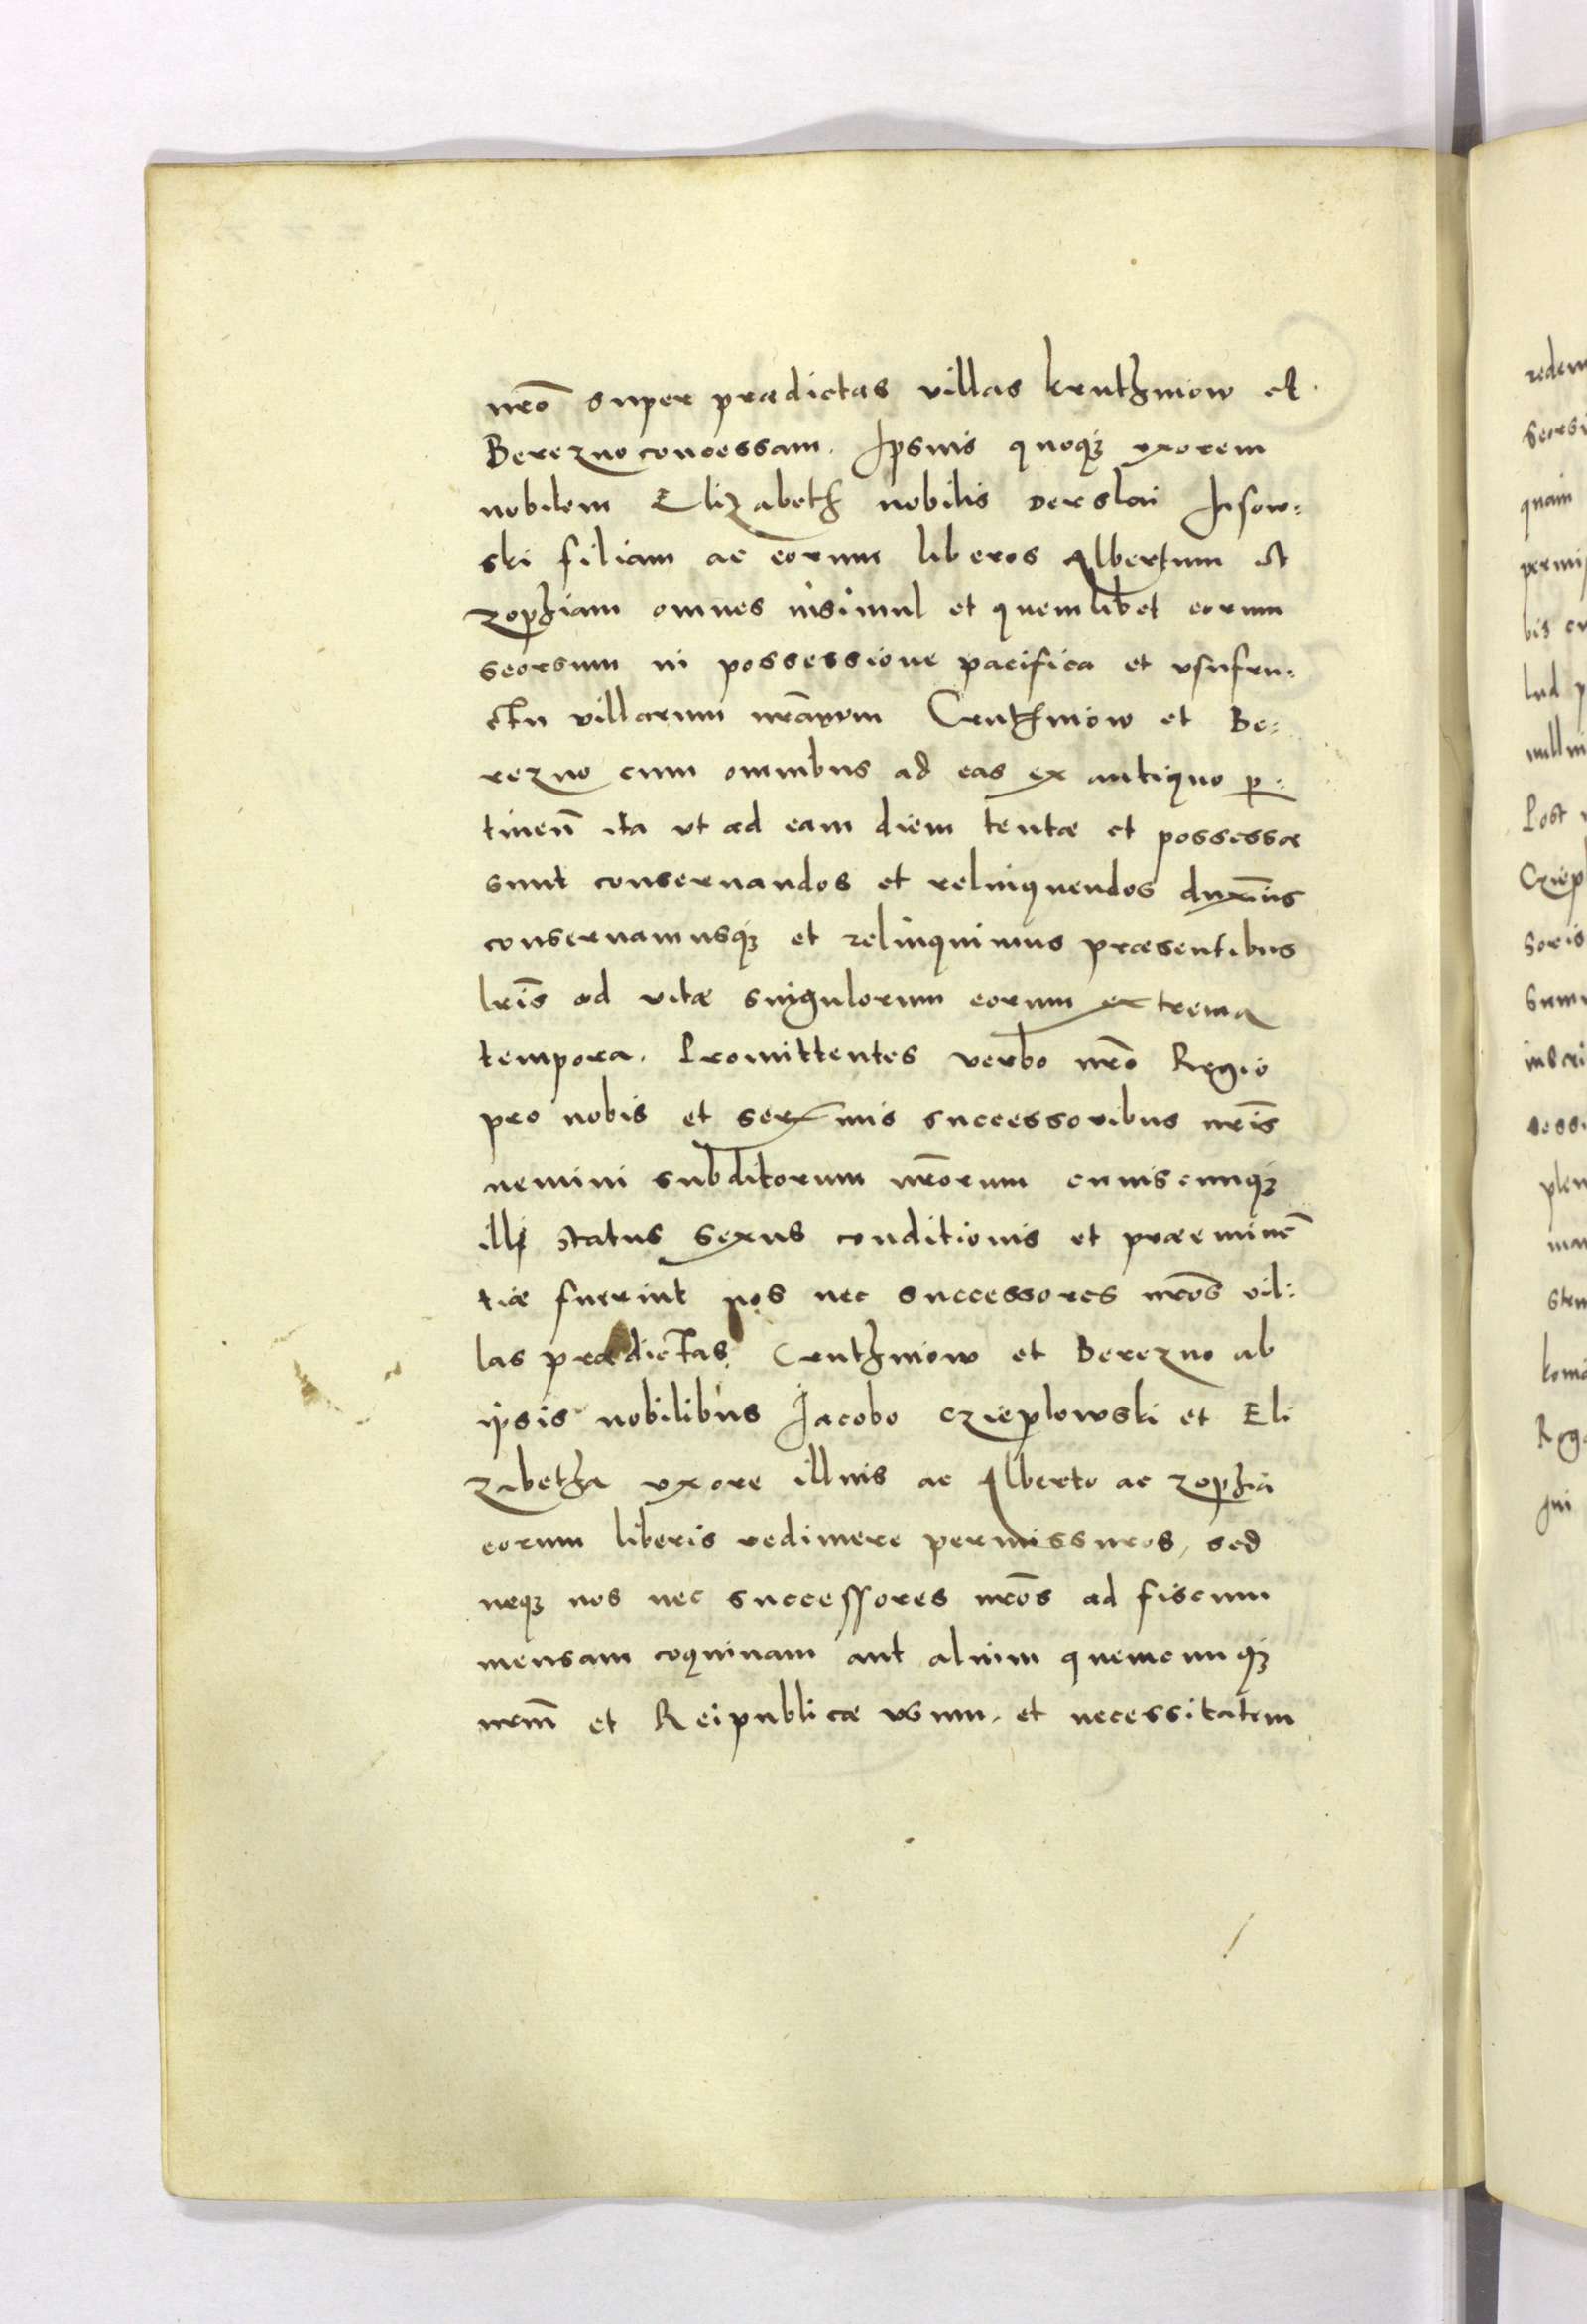 nrõ super prædictas villas kruthniow et
Berezno concessam. Ipsius quoqꝫ uxorem
nobilem Elizabeth nobilis Derslai
ski filiam ac eorum liberos Albertum et
zophiam omnes insimul et quemlibet eorum
seorsum in possessione pacifica et usufru-
ctu villarum nrãrum Cruthniow et Be:
rezno cum omnibus ad eas ex antiquo per:
tineñ ita ut ad eam diem tentæ et possessæ
sunt conservandos et relinquendos duximus
conservamusqꝫ et relinquimus præsentibus
lris ad vitæ singulorum eorum extrema
tempora. Promittentes verbo nrõ Regio
pro nobis et ser-mis successoribus nris
nemini subditorum nrõrum cuiuscunqꝫ
illi status sexus conditionis et præeminen
tiæ fuerint nos nec successores nrõs vil:
las prædictas Cruthniow et Berezno ab
ipsis nobilibus Jacobo Czieplowski et Eli
zabetha uxore illius ac Alberto ac zophia
eorum liberis redimere permissuros, sed
neqꝫ nos nec successores nrõs ad fiscum
mensam coquinam aut alium quemcunqꝫ
nrm̃ et Reipublicæ usum. et necessitatem